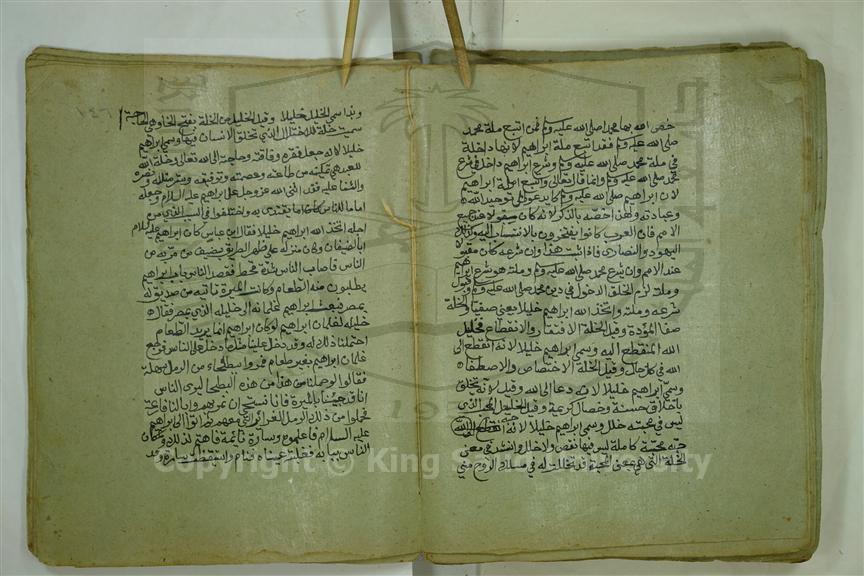 خص الله بها محمد اصلى الله عليه وسلم فمن اتبع ملة محمد
صلى الله عليه وسلم فقد اتبع ملة ابراهيم لانها داخلة
في ملة محمد صلى الله عليه وسلم وشرع ابراهيم داخل في شرع
محمد صلى الله عليه وسلم وانما قال تعالى واتبع ملة ابراهيم
لان ابراهيم صلى الله عليه وسلم كان يدعو الى توحيد الله
وعبادته ولهذا خصه بالذكر لانه كان مقبولا عند جميع
الامم فان العرب كانوا يفتخرون بالانتساب اليه وكذلك
اليهود والنصارى فاذا ثبت هذا وان شرعه كان مقبولا
عند الامم وان شرع محمد صلى الله عليه وسلم وملته هو شرع ابراهيم
وملته لزم الخلق الدخول في دين محمد صلى الله عليه وسلم وقبول
شرعه وملته واتخذ الله ابراهيم خليلا يعني صفيا والخلة
صفا المودة وقيل الخلة الافتقار والانقطاع فخليل
الله المنقطع اليه وسمي ابراهيم خليلا لانه انقطع الى
الله في كل حال وقيل الخلة الاختصاص والاصطفاء
وسمي ابراهيم خليلا لانه دعا الى الله وقيل لانه تخلق
باخلاق حسنة وخصال كريمة وقيل الخليل المحب الذي
ليس في محبته خلل وسمي ابراهيم خليلا لانه
محبة كاملة ليس فيها نقص ولا خلل وانشد في معنى
الخلة التي هي بمعنى المحبة قد تخللت له في مسلك الروح مني
وبذا سمي الخليل خليلا وقيل الخليل من الخلة بفتح الخاء وهي الحاجة
سميت خلة للاختلال الذي تخلق الانسان فيها وسمي ابراهيم
خليلا لانه جعل فقره وفاقته وحاجته الى الله تعالى وخلة الله
للعبد هي تمكينه من طاعته وعصمته وتوفيقه وستر خلله ونصره
والثنا عليه فقد اثنى الله عز وجل على ابراهيم عليه السلام وجعله
اماما للناس يقتدى به واختلفوا في السبب الذي من
اجله اتخذ الله ابراهيم خليلا فقال ابن عباس كان ابراهيم عليه السلام
ابا الضيفان وكان منزله على ظهر الطريق يضيف من مر به من
الناس فاصاب الناس شدة قحط فقصد الناس باب ابراهيم
يطلبون منه الطعام وكانت الميرة تاتيه من صديق له
بمصر فبعث ابراهيم غلمانه الى خليله الذي بمصر فقال
خليله لغلمان ابراهيم لو كان ابراهيم انما يريد الطعام
احتملنا ذلك له وقد دخل علينا مثل ما دخل على الناس فرجع
غلمان ابراهيم بغير طعام فمروا ببطحاء من الرمل سهلة
فقالوا لو حملنا من هذا من هذه البطحى ليرى الناس
انا قد جينا بالميرة فانا نستحي ان نمر بهم وابلنا فارغة
فملوا من ذلك الرمل الغراير التي معهم ثم اتوا الى ابراهيم
عليه السلام فاعلموه وسارة نايمة فاهتم لذلك ومكان
الناس ببابه فغلبته عيناه فنام واستيقظت سارة وقد
Copyright © King Saud University